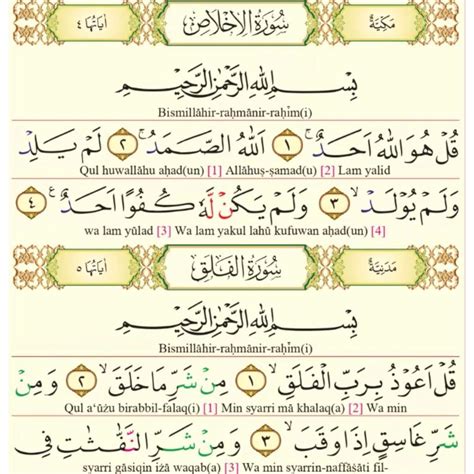 مَكِيَّةٌ سُورَةُ الْاِخْلَاصِ اٰيَاتُهَا ٤
بِسْمِ اللّٰهِ الرَّحْمٰنِ الرَّحِيْمِ
Bismillāhir-raḥmānir-raḥīm(i)
قُلْ هُوَ اللّٰهُ اَحَدٌۚ ١ اَللّٰهُ الصَّمَدُۚ ٢ لَمْ يَلِدْ
Qul huwallāhu aḥad(un) [1] Allāhuṣ-ṣamad(u) [2] Lam yalid
وَلَمْ يُوْلَدْۙ ٣ وَلَمْ يَكُنْ لَّهٗ كُفُوًا اَحَدٌ ࣖ ٤
wa lam yūlad [3] Wa lam yakul lahū kufuwan aḥad(un) [4]
مَدَنِيَّةٌ سُورَةُ الْفَلَقِ اٰيَاتُهَا ٥
بِسْمِ اللّٰهِ الرَّحْمٰنِ الرَّحِيْمِ
Bismillāhir-raḥmānir-raḥīm(i)
قُلْ اَعُوْذُ بِرَبِّ الْفَلَقِۙ ١ مِنْ شَرِّ مَا خَلَقَۙ ٢ وَمِنْ
Qul a‘ūżu birabbil-falaq(i) [1] Min syarri mā khalaq(a) [2] Wa min
شَرِّ غَاسِقٍ اِذَا وَقَبَۙ ٣ وَمِنْ شَرِّ النَّفّٰثٰتِ فِى
syarri gāsiqin iżā waqab(a) [3] Wa min syarrin-naffāṡāti fil-